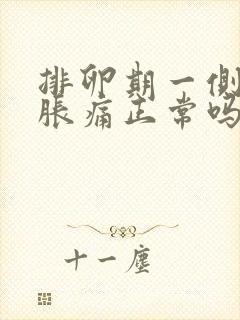 排卵期一侧
胀痛正常吗
十一尘